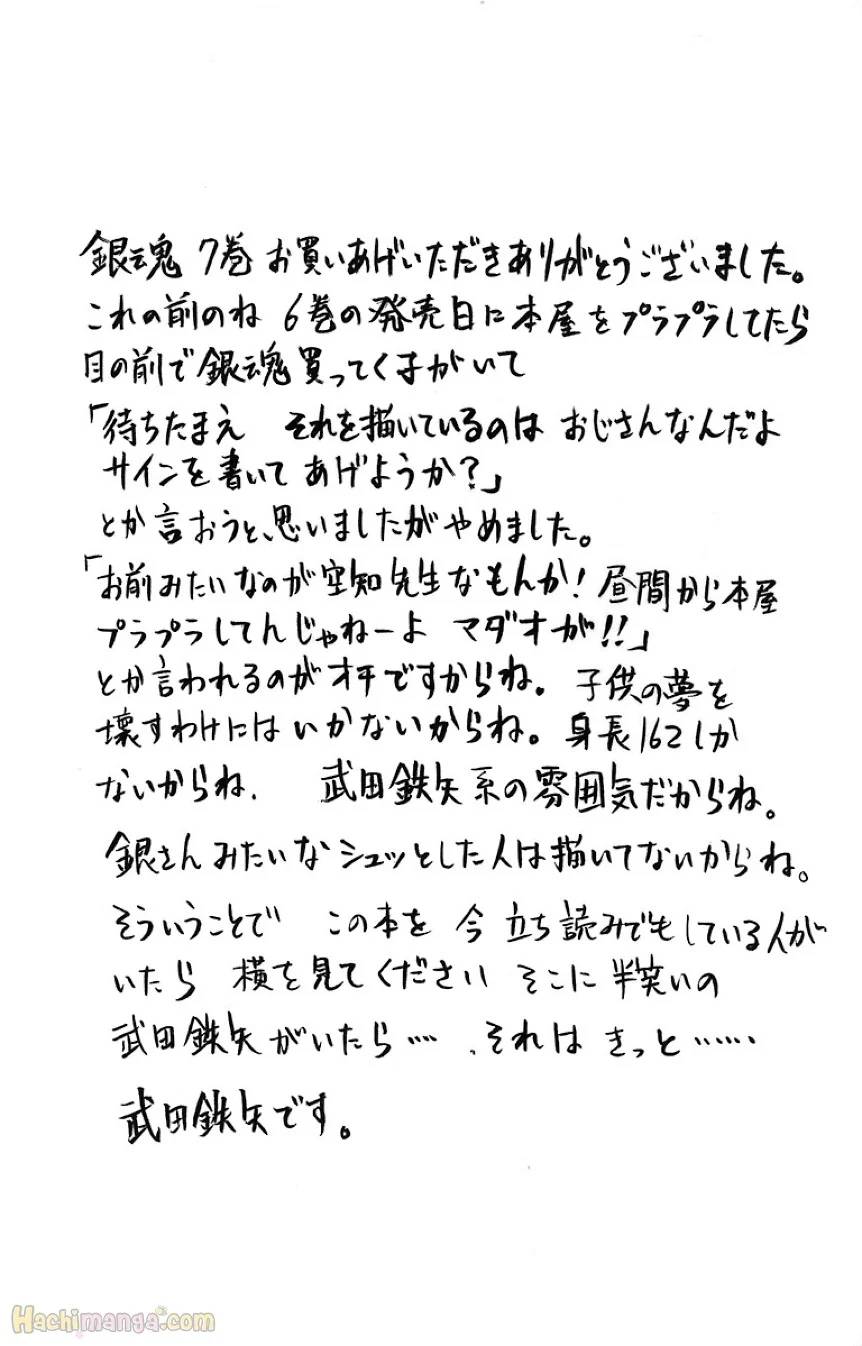 銀魂 7巻 お買いあげいただきありがとうございました。
これの前のね 6巻の発売日に本屋をプラプラしてたら
目の前で銀魂買ってく子がいて
「待ちたまえ それを描いているのは おじさんなんだよ
サインを書いて あげようか?」
とか言おうと、思いましたがやめました。
「お前みたいなのが空知先生なもんか! 昼間から本屋
プラプラしてんじゃねーよ マダオが!!」
とか言われるのがオチですからね。子供の夢を
壊すわけにはいかないからね。身長162しか
ないからね. 武田鉄矢系の雰囲気だからね。
銀さんみたいなシュッとした人は描いてないからね。
そういうことで この本を 今 立ち読みでもしている人が
いたら 横を見てください そこに半笑いの
武田鉄矢がいたら…. それは きっと……
武田鉄矢です。
Hachimanga.com